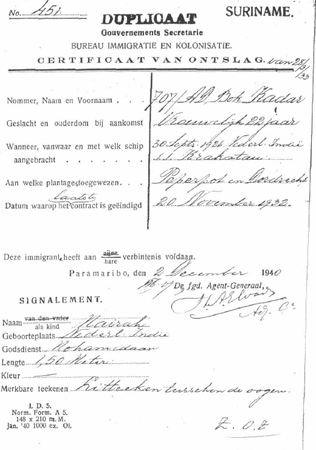 No. 451.
SURINAME.
DUPLICAAT
Gouvernements Secretarie
BUREAU IMMIGRATIE EN KOLONISATIE.
CERTIFICAAT VAN ONTSLAG. van
Nommer, Naam en Voornaam 707/AD Bok Kadar
Geslacht en ouderdom bij aankomst Vrouwelijk 22 jaar
Wanneer, vanwaar en met welk schip aangebracht 30 Sept. Nederl. Indië
s.s. Krakatau
Aan welke plantage toegewezen Peperpot en Dordrecht
laatste
Datum waarop het contract is geëindigd 20 November 1932.
Deze immigrant heeft aan zijne
hare verbintenis voldaan.
Paramaribo, de 2 December 1940
De fgd. Agent-Generaal,
SIGNALEMENT.
Naam van den vader
als kind Nairah
Geboorteplaats Nederl. Indië
Godsdienst Mohamedaan
Lengte 1,50 Meter
Kleur —
Merkbare teekenen Litteeken tusschen de oogen.
I. D. 5.
Norm. Form. A 5.
148 x 210 m. M.
Jan. '40 1000 ex. Ol.